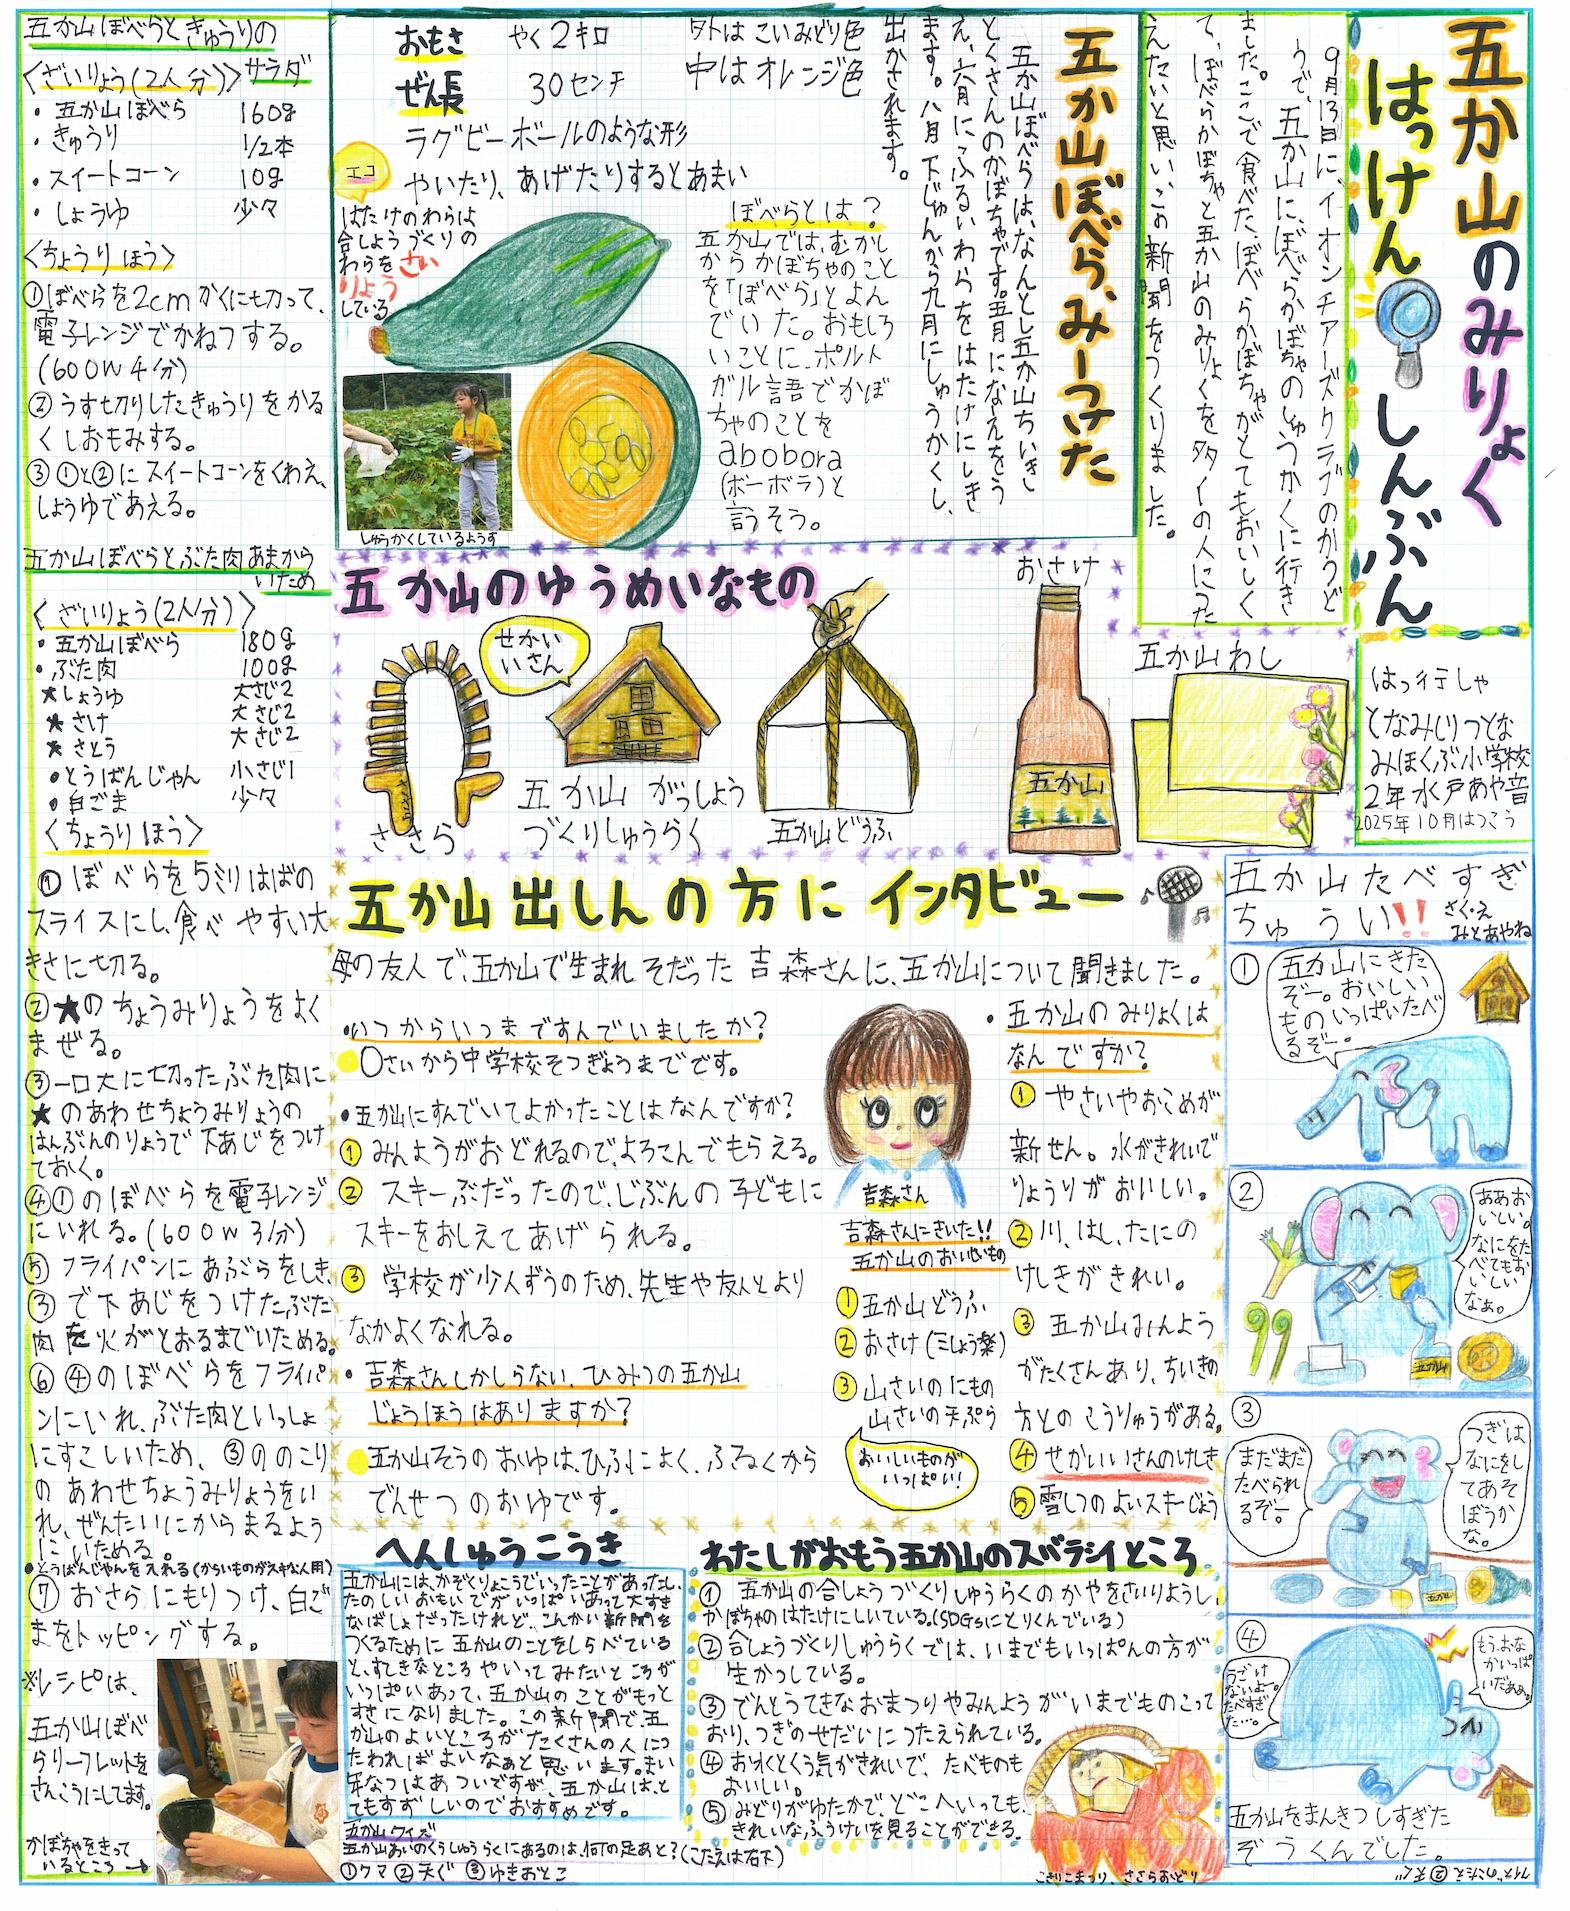 五か山のみりょく
はっけん
しんぶん
はっ行しゃ
となみしりつとな
みほくぶ小学校
2年 水戸あや音
2025年10月はっこう
9月13日に、イオンチアーズクラブのかつど
うで、五か山に、ぼべらかぼちゃのしゅうかくに行き
ました。ここで食べた、ぼべらかぼちゃがとてもおいしく
て、ぼべらかぼちゃと五か山のみりょくを多くの人につた
えたいと思い、この新聞をつくりました。
五か山ぼべら、みーつけた
五か山ぼべらは、なんとし五か山ちいき
とくさんのかぼちゃです。五月になえをう
え、六月にふるいわらをはたけにしき
ます。八月下じゅんから九月にしゅうかくし、
出かされます。
おもさ やく2キロ
ぜん長 30センチ
外はこいみどり色
中はオレンジ色
ラグビーボールのような形
やいたり、あげたりするとあまい
エコ
はたけのわらは
合しょうづくりの
わらをさい
りょう
している
ぼべらとは？
五か山では、むかし
からかぼちゃのこと
を「ぼべら」とよん
でいた。おもしろ
いことに、ポルト
ガル語でかぼ
ちゃのことを
abobora
(ボーボラ)と
言うそう。
しゅうかくしているようす
五か山のゆうめいなもの
ささら
せかい
いさん
五か山 がっしょう
づくりしゅうらく
五か山どうふ
おさけ
五か山
五か山わし
五か山ぼべらときゅうりの
サラダ
〈ざいりょう(2人分)〉
・五か山ぼべら 160g
・きゅうり 1/2本
・スイートコーン 10g
・しょうゆ 少々
〈ちょうりほう〉
①ぼべらを2cmかくに切って、
電子レンジでかねつする。
(600W4分)
②うす切りしたきゅうりをかる
くしおもみする。
③①と②にスイートコーンをくわえ、
しょうゆであえる。
五か山ぼべらとぶた肉あまから
いため
〈ざいりょう(2人分)〉
・五か山ぼべら 180g
・ぶた肉 100g
★しょうゆ 大さじ2
★さけ 大さじ2
★さとう 大さじ2
・とうばんじゃん 小さじ1
・白ごま 少々
〈ちょうりほう〉
①ぼべらを5ミリはばの
スライスにし、食べやすい大
きさに切る。
②★のちょうみりょうをよく
まぜる。
③一口大に切ったぶた肉に
★のあわせちょうみりょうの
はんぶんのりょうで下あじをつけ
ておく。
④①のぼべらを電子レンジ
にいれる。(600W3分)
⑤フライパンにあぶらをしき、
③で下あじをつけたぶた
肉を火がとおるまでいためる。
⑥④のぼべらをフライパ
ンにいれ、ぶた肉といっしょ
にすこしいため、③ののこり
のあわせちょうみりょうをい
れ、ぜんたいにからまるよう
にいためる。
・とうばんじゃんを入れる(からいものがスキな人用)
⑦おさらにもりつけ、白ご
まをトッピングする。
※レシピは、
五か山ぼべ
らリーフレットを
さんこうにしてます。
かぼちゃをきって
いるところ→
五か山出しんの方にインタビュー
母の友人で、五か山で生まれそだった吉森さんに、五か山について聞きました。
・いつからいつまですんでいましたか？
0さいから中学校そつぎょうまでです。
・五か山にすんでいてよかったことはなんですか？
①みんようがおどれるので、よろこんでもらえる。
②スキーぶだったので、じぶんの子どもに
スキーをおしえてあげられる。
③学校が少人ずうのため、先生や友人とより
なかよくなれる。
・吉森さんしかしらない、ひみつの五か山
じょうほうはありますか？
五か山そうのおゆは、ひふによく、ふるくから
でんせつのおゆです。
吉森さん
吉森さんにきいた!!
五か山のおいしいもの
①五か山どうふ
②おさけ(三しょう楽)
③山さいのにもの
山さいの天ぷら
おいしいものが
いっぱい！
・五か山のみりょくは
なんですか？
①やさいやおこめが
新せん。水がきれいで
りょうりがおいしい。
②川、はし、たにの
けしきがきれい。
③五か山みんよう
がたくさんあり、ちいきの
方とのこうりゅうがある。
④せかいいさんのけしき
⑤雪しつのよいスキーじょう
へんしゅうこうき
五か山には、かぞくりょこうでいったことがあったし、
たのしいおもいでがいっぱいあって大すき
なばしょだったけれど、こんかい新聞を
つくるために五か山のことをしらべている
と、すてきなところやいってみたいところが
いっぱいあって、五か山のことがもっと
すきになりました。この新聞で、五
か山のよいところがたくさんの人につ
たわればよいなぁと思います。まい
年なつはあついですが、五か山は、と
てもすずしいのでおすすめです。
五か山クイズ
五か山あいのくらしゅうらくにあるのは、何の足あと？(こたえは右下)
①クマ ②天ぐ ③ゆきおとこ
わたしがおもう五か山のスバラシイところ
①五か山の合しょうづくりしゅうらくのかやをさいりようし、
かぼちゃのはたけにしいている。(SDGsにとりくんでいる)
②合しょうづくりしゅうらくでは、いまでもいっぱんの方が
生かつしている。
③でんとうてきなおまつりやみんようがいまでものこって
おり、つぎのせだいにつたえられている。
④おみくとくう気がきれいで、たべものも
おいしい。
⑤みどりがゆたかで、どこへいっても、
きれいなふうけいを見ることができる。
こきりこまつり、ささらおどり
五か山たべすぎ
ちゅうい!!
さく・え
みとあやね
①
五か山にきた
ぞー。おいしい
ものいっぱいたべ
るぞー。
②
ああお
いしい。
なにをた
べてもお
いしい
なぁ。
五か山
③
つぎは
なにをし
てあそ
ぼうか
な。
まだまだ
たべられ
るぞー。
五か山
④
もうおな
かいっぱ
いだぁぁ。
うごけ
ないよー。
たべすぎ
た…。
五か山をまんきつしすぎた
ぞうくんでした。
クイズのこたえ ②天ぐ